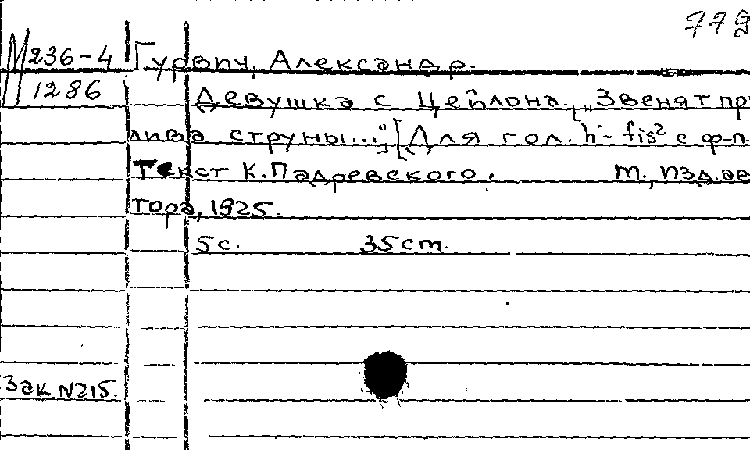 779
М 236-4 Гурвич, Александр.
1286 Девушка с Цейлона. „Звенят при
лива струны..." [Для гол. h-fis² с ф-п.
Текст К. Подревского. М., изд. ав
тора, 1925.
5 с. 35 cm.
Зак N215.